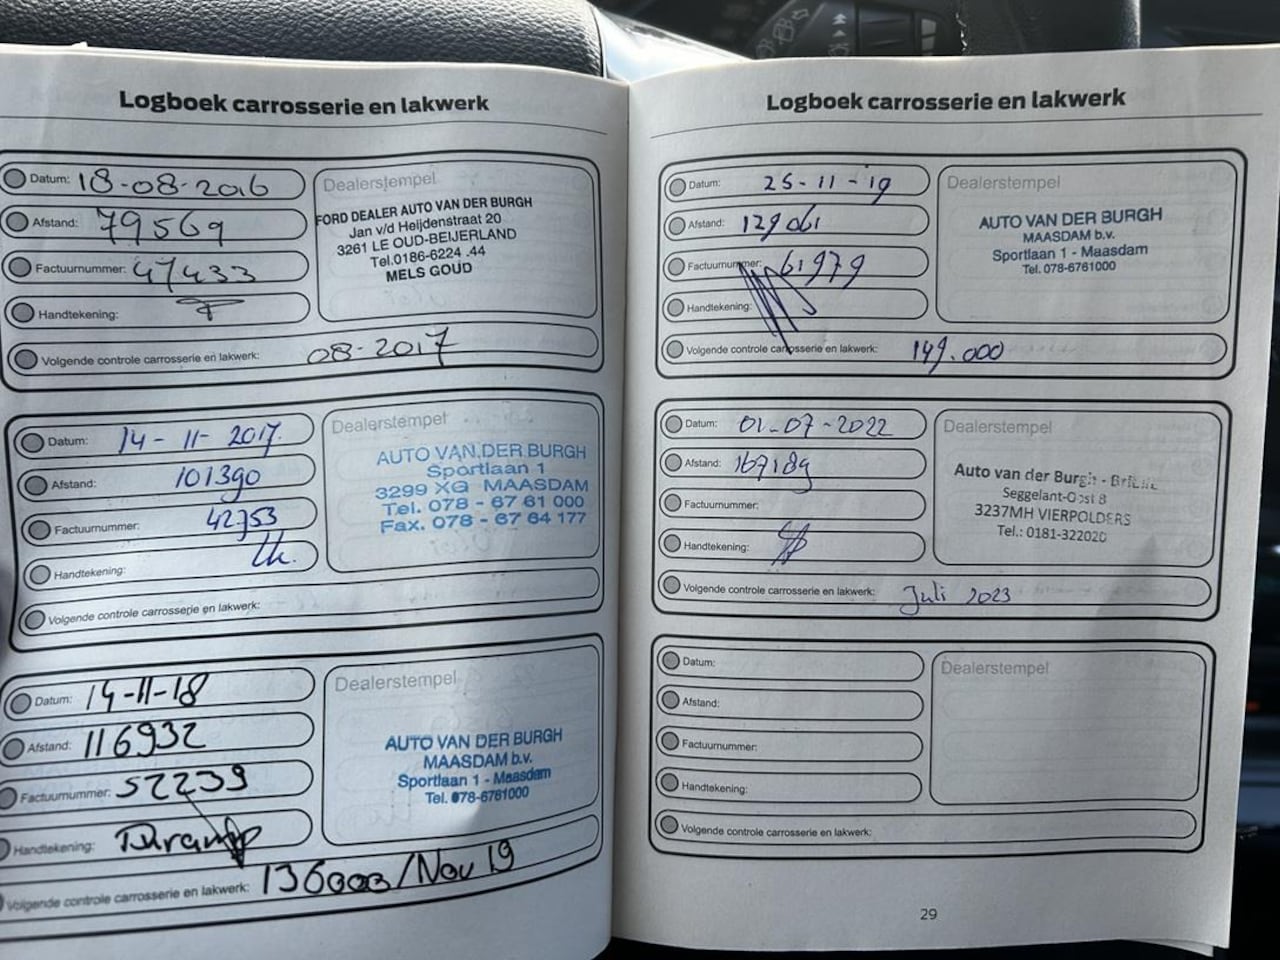 Logboek carrosserie en lakwerk
Datum: 18-08-2016
Afstand: 79569
Factuurnummer: 47433
Handtekening:
Volgende controle carrosserie en lakwerk: 08-2017
Dealerstempel
FORD DEALER AUTO VAN DER BURGH
Jan v/d Heijdenstraat 20
3261 LE OUD-BEIJERLAND
Tel.0186-6224 .44
MELS GOUD
Datum: 14-11-2017.
Afstand: 101390
Factuurnummer: 42753
Handtekening:
Volgende controle carrosserie en lakwerk:
Dealerstempel
AUTO VAN DER BURGH
Sportlaan 1
3299 XG MAASDAM
Tel. 078 - 67 61 000
Fax. 078 - 67 64 177
Datum: 14-11-18
Afstand: 116932
Factuurnummer: 52239
Handtekening:
Volgende controle carrosserie en lakwerk: 136000/Nov 19
Dealerstempel
AUTO VAN DER BURGH
MAASDAM b.v.
Sportlaan 1 - Maasdam
Tel. 078-6761000
Logboek carrosserie en lakwerk
Datum: 25-11-19
Afstand: 129061
Factuurnummer: 61979
Handtekening:
Volgende controle carrosserie en lakwerk: 149.000
Dealerstempel
AUTO VAN DER BURGH
MAASDAM b.v.
Sportlaan 1 - Maasdam
Tel. 078-6761000
Datum: 01-07-2022
Afstand: 167189
Factuurnummer:
Handtekening:
Volgende controle carrosserie en lakwerk: Juli 2023
Dealerstempel
Auto van der Burgh -
Seggelant-Oost 8
3237MH VIERPOLDERS
Tel.: 0181-322020
Datum:
Afstand:
Factuurnummer:
Handtekening:
Volgende controle carrosserie en lakwerk:
Dealerstempel
29